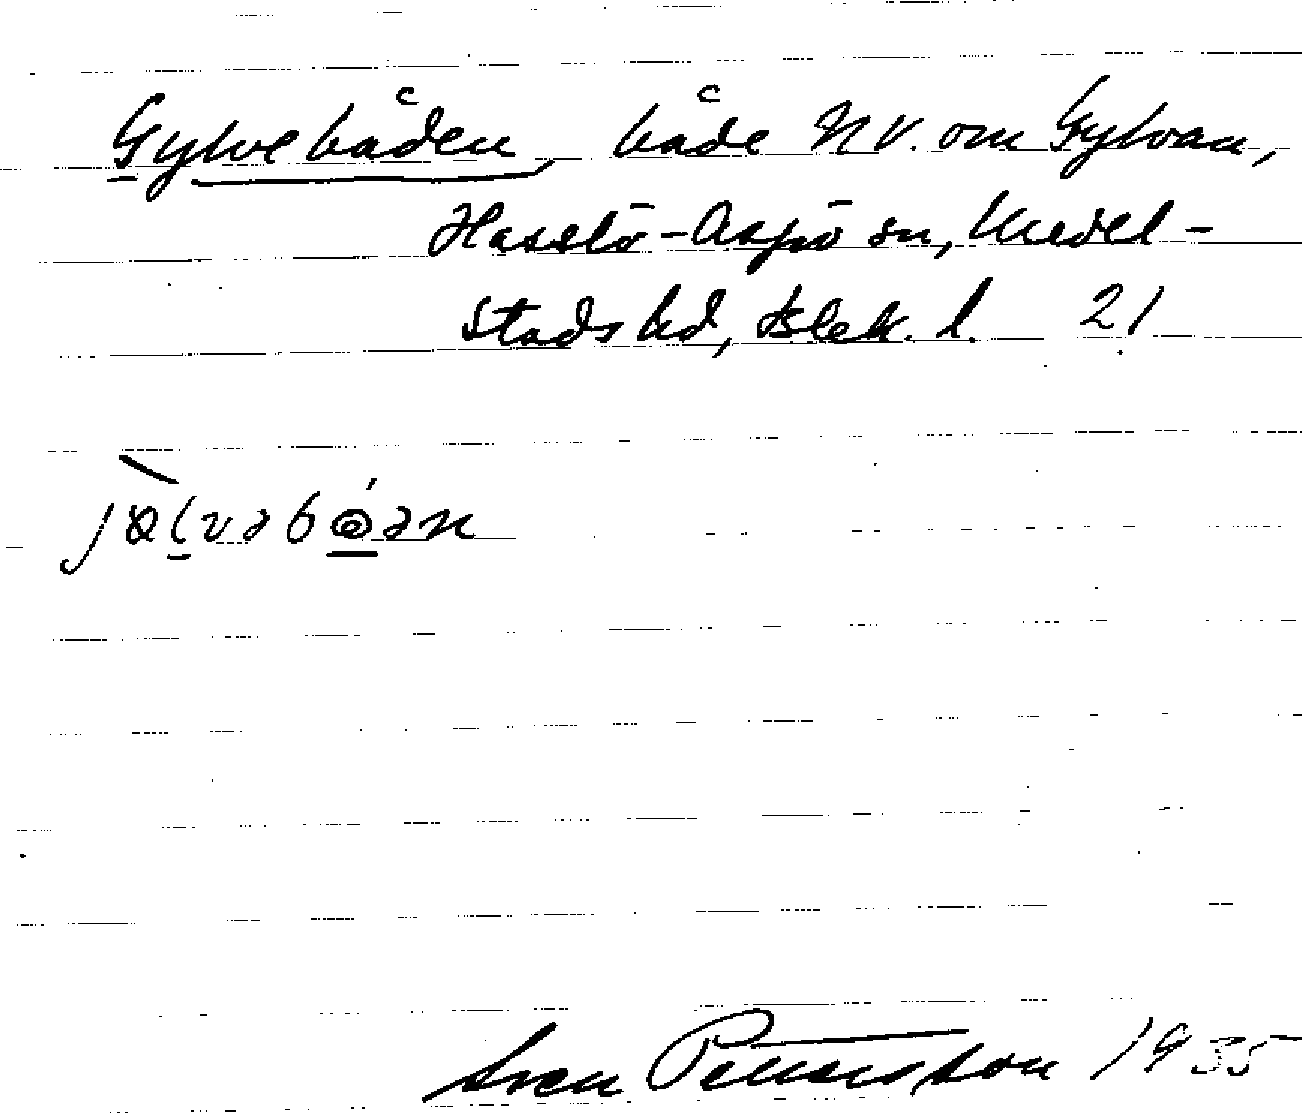 Gylvebåden, både NV. om Gylvan,
Hasslö-Aspö sn, Medel-
stads hd, Blek. l. 21
Sven Pettersson 1935